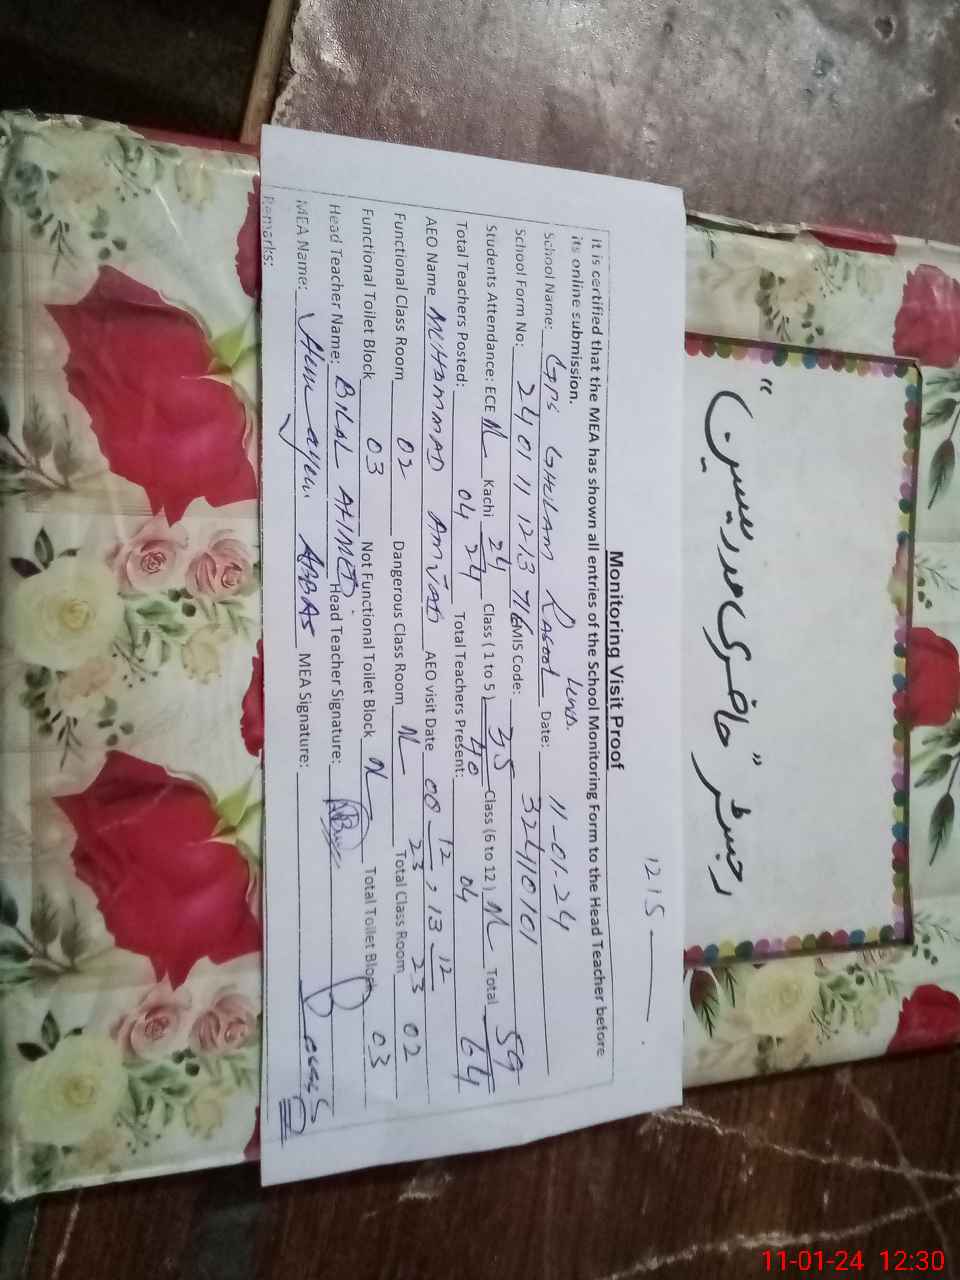 ”رجسٹر حاضری مدرسین“
1215
Monitoring Visit Proof
It is certified that the MEA has shown all entries of the School Monitoring Form to the Head Teacher before
its online submission.
School Name: GPS GHULAM Rasool Date: 11-01-24
School Form No: 2401112137 EMIS Code: 32110101
Students Attendance: ECE N Kachi 24/24 Class (1 to 5) 35/40 Class (6 to 12) N Total 59/64
Total Teachers Posted: 04 Total Teachers Present: 04
AEO Name MUHAMMAD AMJAD AEO visit Date 08-12-23, 13-12-23
Functional Class Room 02 Dangerous Class Room N Total Class Room 02
Functional Toilet Block 03 Not Functional Toilet Block N Total Toilet Block 03
Head Teacher Name: BILAL AHMED Head Teacher Signature:
MEA Name: Humayun ABBAS MEA Signature:
Remarks:
11-01-24 12:30